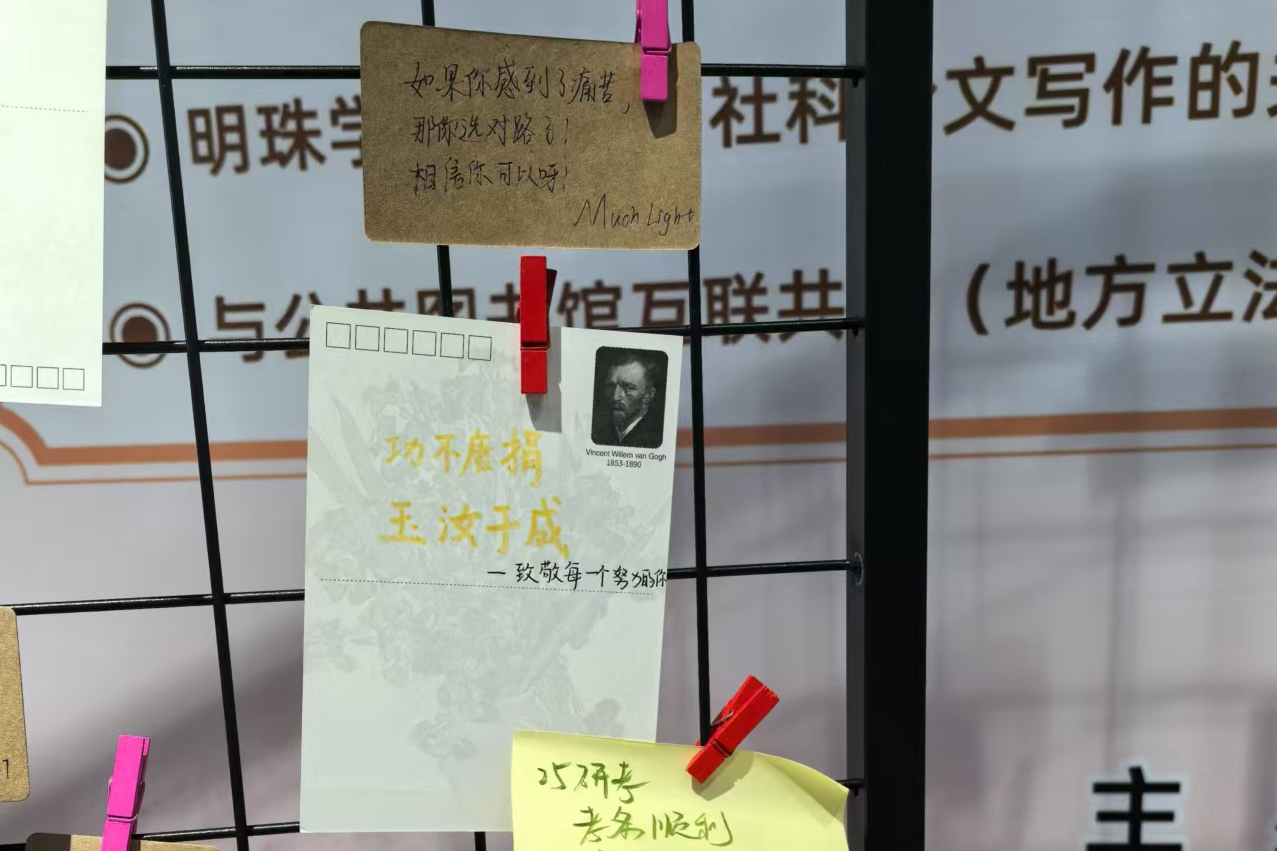 如果你感到了痛苦，
那你选对路了！
相信你可以呀！
Much Light
明珠学
社科
文写作的
与公共图书馆互联共
（地方立法
Vincent Willem van Gogh
1853-1890
功不唐捐
玉汝于成
一致敬每一个努力的你
25研考
考条顺利